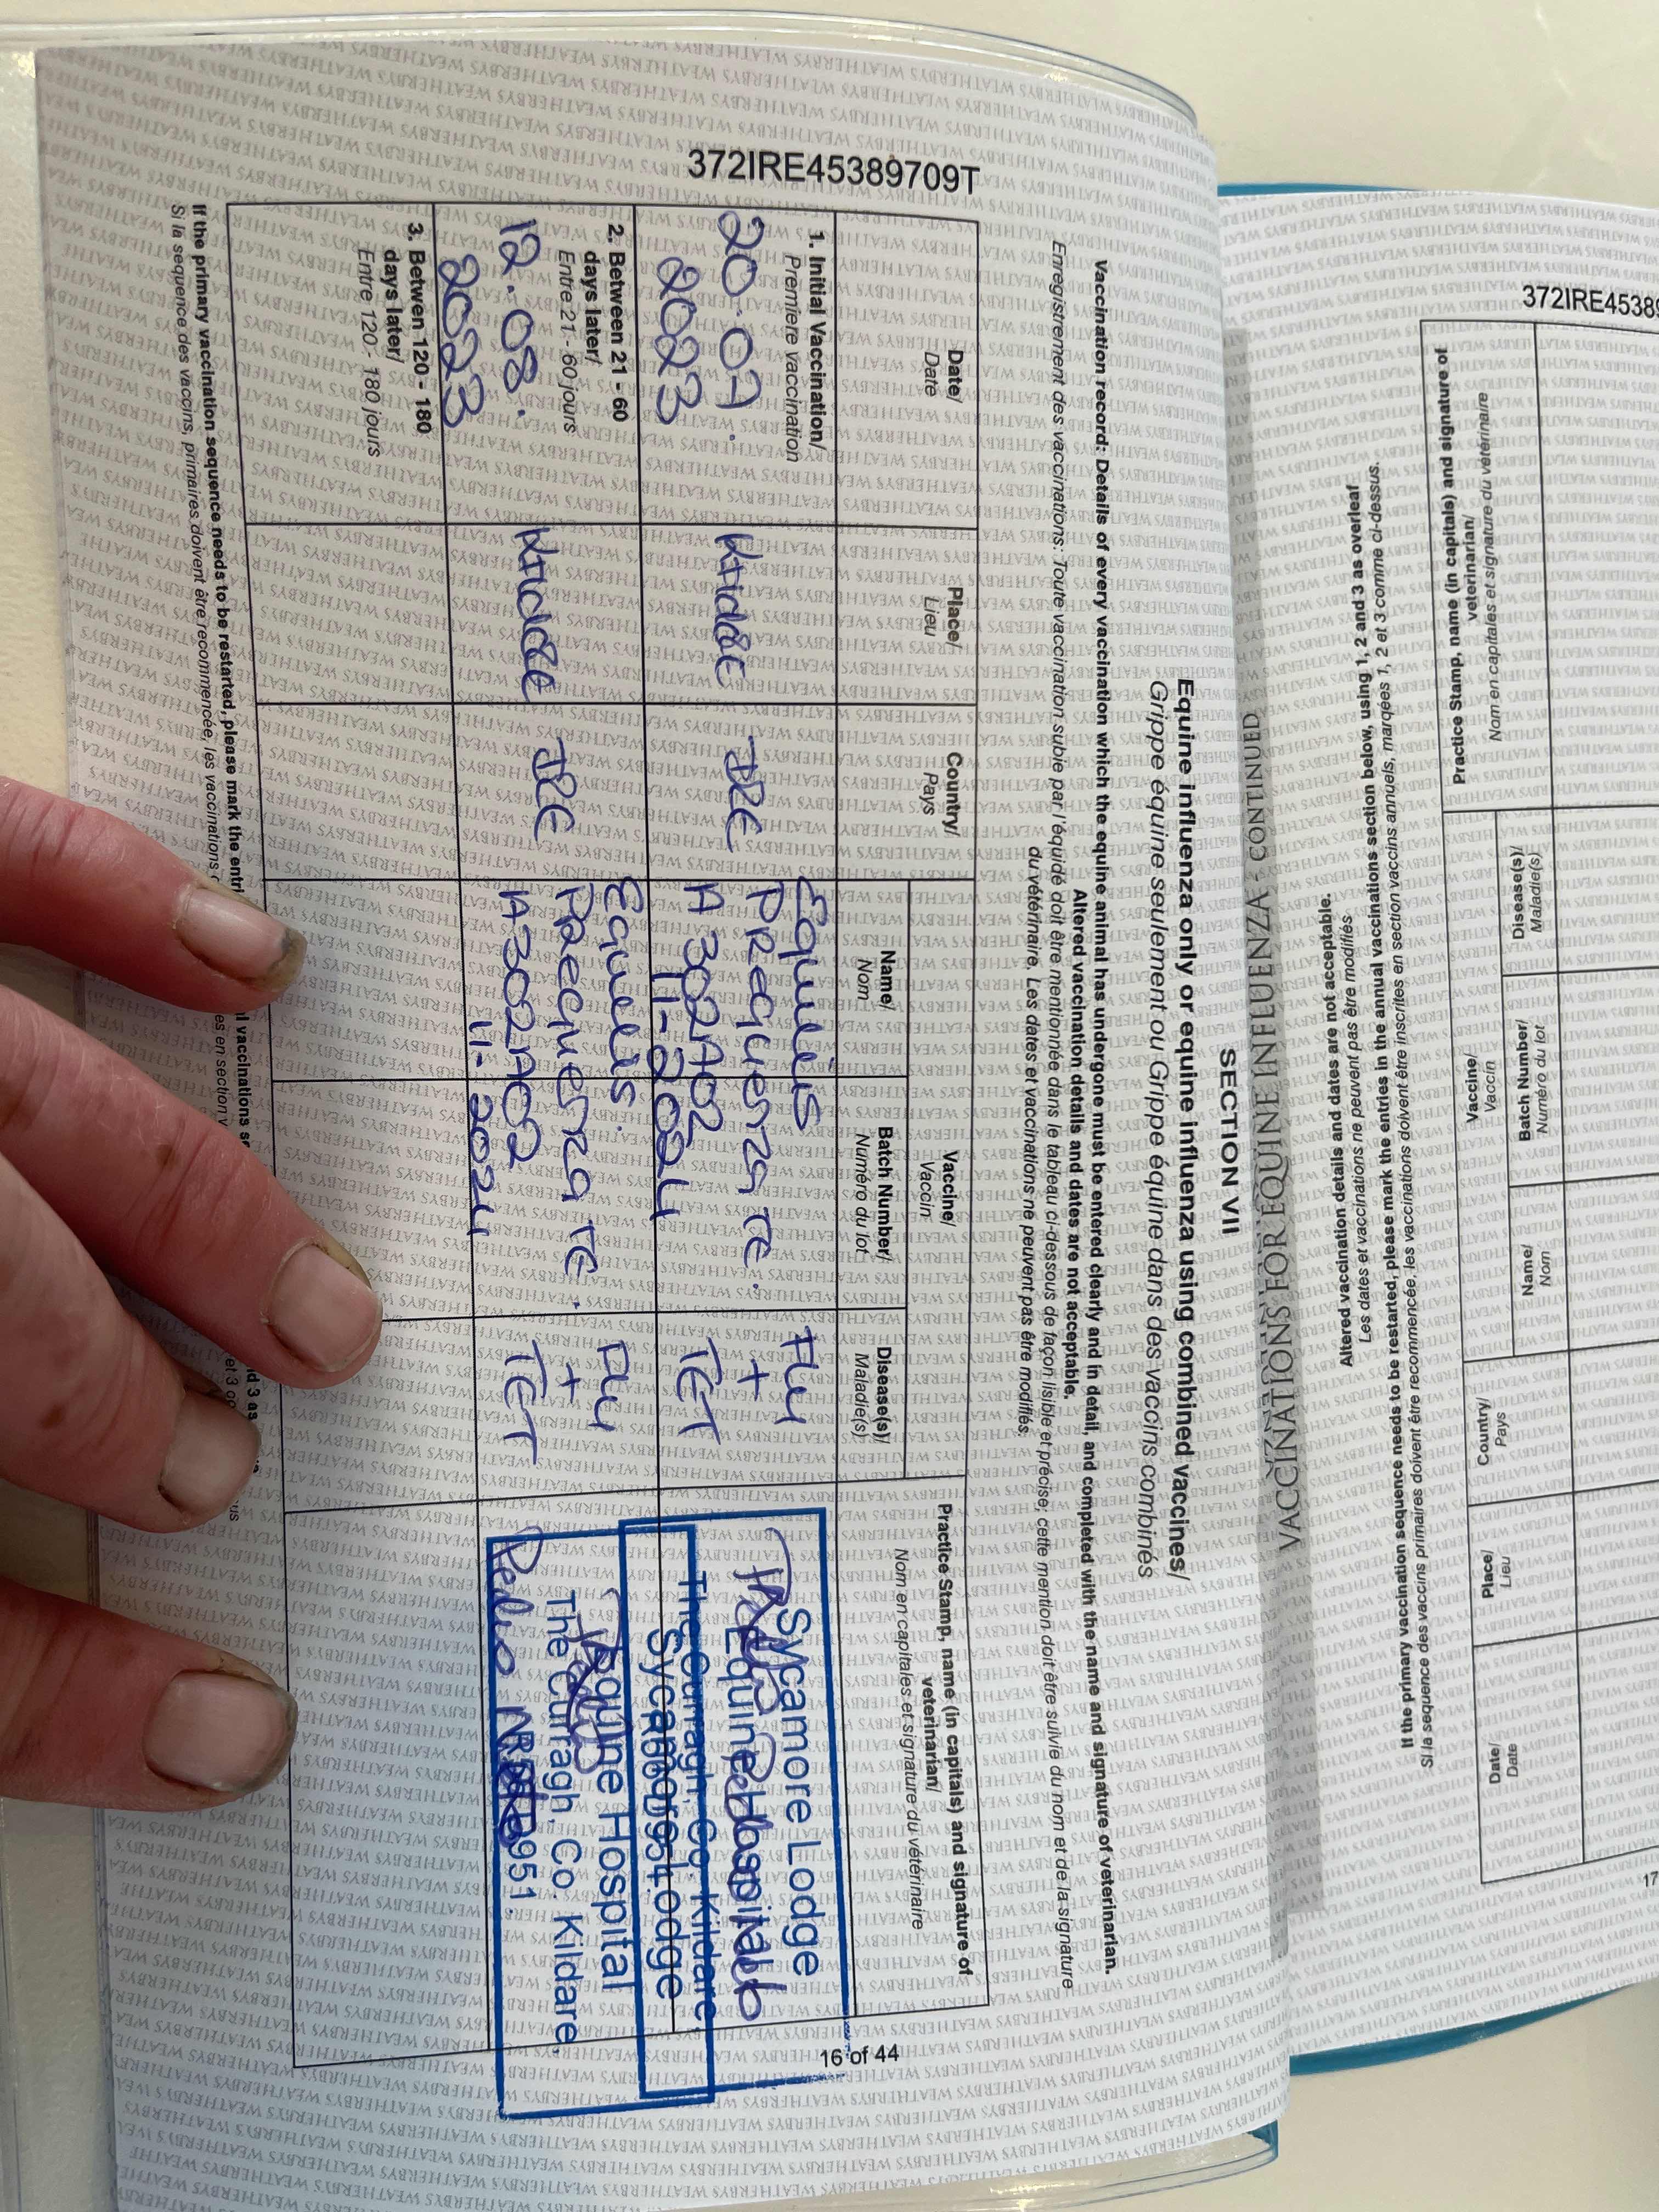 372IRE45389709T
SECTION VII
VACCINATIONS FOR EQUINE INFLUENZA - CONTINUED
Equine influenza only or equine influenza using combined vaccines/
Grippe équine seulement ou Grippe équine dans des vaccins combinés
Vaccination record: Details of every vaccination which the equine animal has undergone must be entered clearly and in detail, and completed with the name and signature of veterinarian.
Altered vaccination details and dates are not acceptable.
Enregistrement des vaccinations: Toute vaccination subie par l'équidé doit être mentionnée dans le tableau ci-dessous de façon lisible et précise; cette mention doit être suivie du nom et de la signature
du vétérinaire. Les dates et vaccinations ne peuvent pas être modifiés.
Date/
Date
Place/
Lieu
Country/
Pays
Vaccine/
Vaccin
Name/
Nom
Batch Number/
Numéro du lot
Disease(s)/
Maladie(s)
Practice Stamp, name (in capitals) and signature of
veterinarian/
Nom en capitales et signature du vétérinaire
1. Initial Vaccination/
Première vaccination
20.07.
2023
IRE
Equilis
PREQUENZA TE.
A302A02
11-2024
Flu
+
TET
Sycamore Lodge
Equine Hospital
The Curragh, Co. Kildare
2. Between 21 - 60
days later/
Entre 21 - 60 jours
12.08.
2023
IRE
Equilis.
PREQUENZA TE.
A302A02
11.2024
FLU
+
TET
Sycamore Lodge
Equine Hospital
The Curragh, Co. Kildare,
3. Betwen 120 - 180
days later/
Entre 120 - 180 jours
If the primary vaccination sequence needs to be restarted, please mark the entri
Si la sequence des vaccins primaires doivent être recommencée, les vaccinations
16 of 44
372IRE45389
Practice Stamp, name (in capitals) and signature of
veterinarian/
Nom en capitales et signature du vétérinaire
Disease(s)/
Maladie(s)
Batch Number/
Numéro du lot
Vaccine/
Vaccin
Name/
Nom
Country/
Pays
Place/
Lieu
Date/
Date
Altered vaccination details and dates are not acceptable.
Les dates et vaccinations ne peuvent pas être modifiés
If the primary vaccination sequence needs to be restarted, please mark the entries in the annual vaccinations section below, using 1, 2 and 3 as overleaf
Si la sequence des vaccins primaires doivent être recommencée, les vaccinations doivent être inscrites en section vaccins annuels, marqées 1, 2 et 3 comme ci-dessus.
17
WEATHERBYS